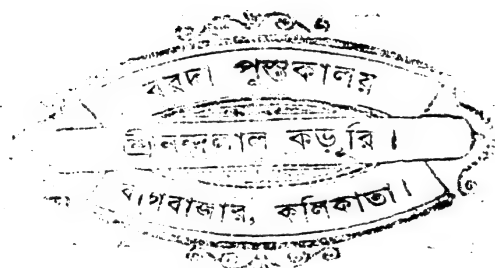 বরদা পুস্তকালয়
শ্রীনন্দলাল কড়ুরি ।
বাগবাজার, কলিকাতা ।